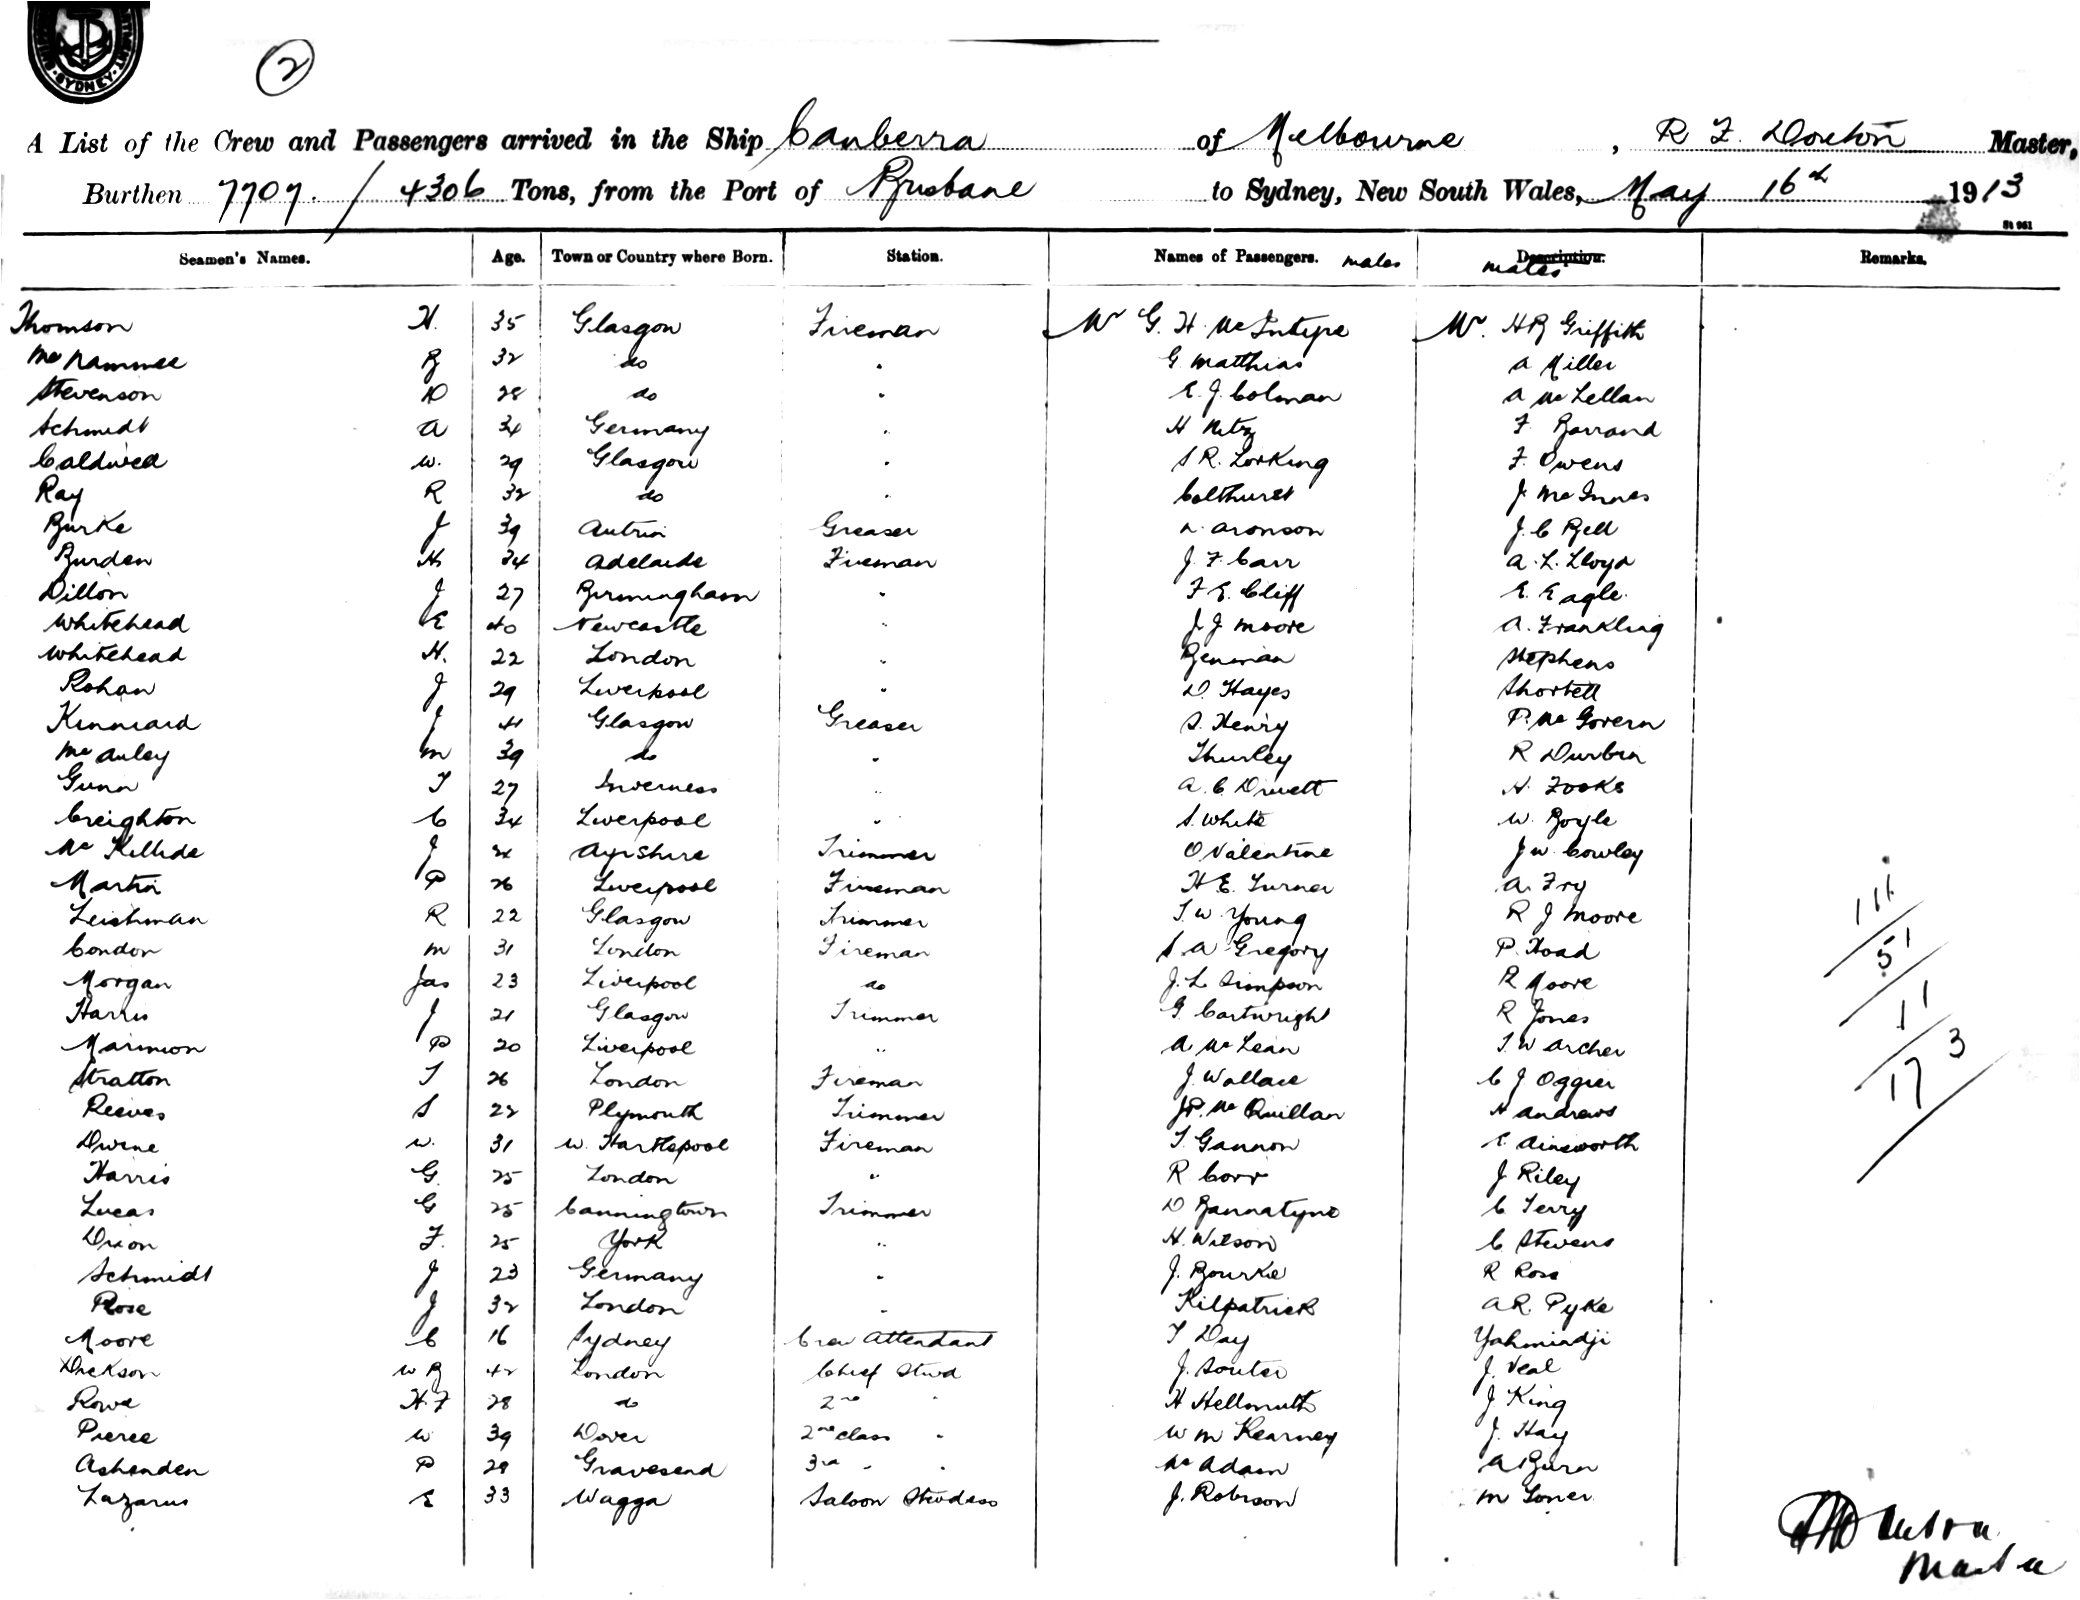 SYDNEY
2
A List of the Crew and Passengers arrived in the Ship Canberra of Melbourne, R F. Douton Master,
Burthen 7707. / 4306 Tons, from the Port of Brisbane to Sydney, New South Wales, May 16th 1913
St 961
Seamen's Names. Age. Town or Country where Born. Station. Names of Passengers. males Description. males Remarks.
Thomson H. 35 Glasgow Fireman Mr G. H. McIntyre Mr. H B Griffith
McNammee B 32 do " G Matthias A Miller
Stevenson D 28 do " E. J. Colman A McLellan
Schmidt A 34 Germany " H Nitz F. Barrand
Caldwell W. 29 Glasgow " S R. Lorking F. Owens
Ray R 32 do " Colthurst J. McInnes
Burke J 39 Autria Greaser L. Aronson J. C Bell
Burden H 24 Adelaide Fireman J. F. Carr A. L. Lloyd
Dillon J 27 Birmingham " F E. Cliff E. Eagle
Whitehead E 40 Newcastle " J. J Moore A. Frankling
Whitehead H. 22 London " Benman Stephens
Rohan J 29 Liverpool " D. Hayes Shortell
Kinniard J 41 Glasgow Greaser S. Henry P. McGovern
McAuley M 39 do " Thurley R Durbin
Gunn T 27 Inverness " A. C. Druett H. Fooks
Creighton C 34 Liverpool " S. White W. Boyle
McKillide J 21 Ayrshire Trimmer O Valentine J W. Cowley
Martin P 26 Liverpool Fireman H E. Turner A. Fry
Leishman R 22 Glasgow Trimmer T. W. Young R J Moore
Condon M 31 London Fireman S. A Gregory P. Hoad
Morgan Jas 23 Liverpool do J. L Simpson R Moore
Harris J 21 Glasgow Trimmer G. Cartwright R Jones
Marmion P 20 Liverpool " A McLean T. W Archer
Stratton T 26 London Fireman J. Wallace C J Oggier
Reeves S 22 Plymouth Trimmer J P. McQuillan H Andrews
Dwine W. 31 W. Hartlepool Fireman T. Gannon E. Ainsworth
Harris G 25 London " R Corr J Riley
Lucas G 25 Canningtown Trimmer D Bannatyne C Terry
Dixon F. 25 York " H. Wilson C Stevens
Schmidt J 23 Germany " J. Bourke R Ross
Rose J 32 London " Kilpatrick A R. Pyke
Moore C 16 Sydney Crew Attendant T Day Yahmindji
Dickson W B 42 London Chief Stwd J. Souter J. Veal
Rowe H. F 28 do 2nd " H Hellmuth J King
Pierce W 39 Dover 2nd class " W M Kearney J. Hay
Ashenden P 29 Gravesend 3rd " " McAdam A Burn
Lazarus E 33 Wagga Saloon Stwdess J. Robison M Toner
111
51
11
173
Master